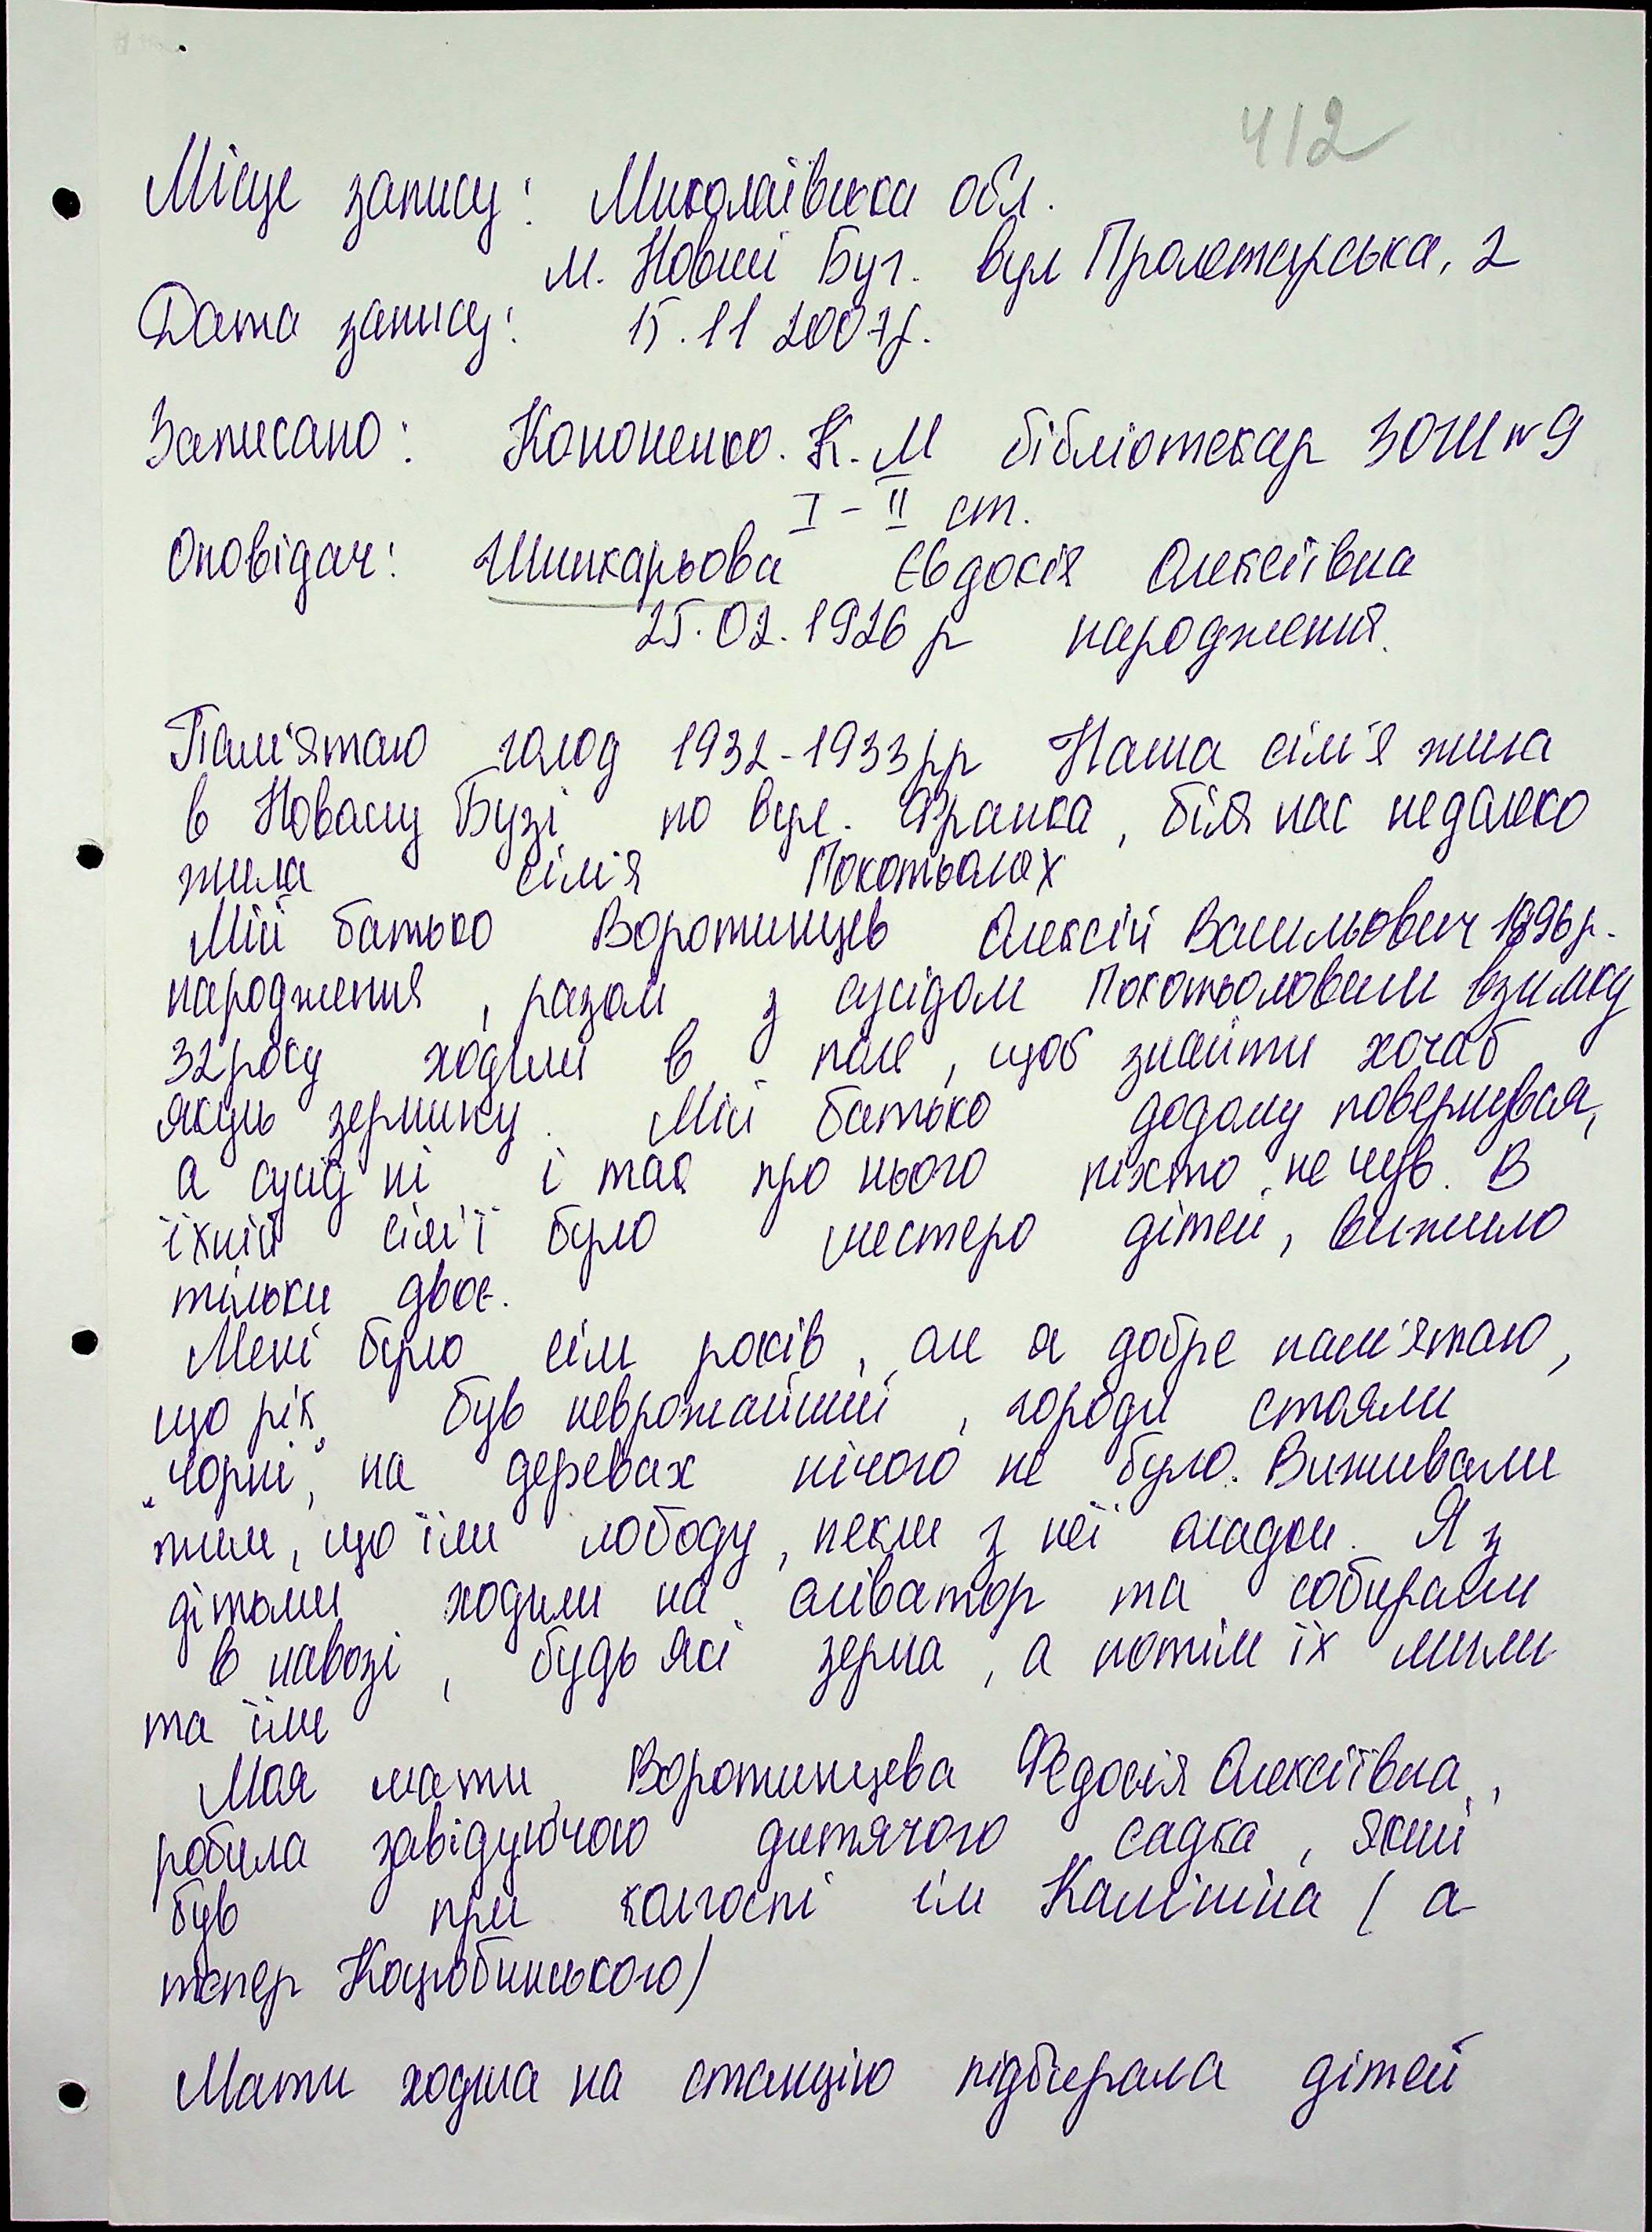 412
Місце запису: Миколаївська обл.
м. Новий Буг. вул Пролетарська, 2
Дата запису: 15.11 2007р.
Записано: Кононенко. К. М бібліотекар ЗОШ №9
I - II ст.
Оповідач: Шинкарьова Євдокія Олексіївна
25.02.1926 р народження.
Пам'ятаю голод 1932-1933рр Наша сім'я жила
в Новому Бузі по вул. Франка, біля нас недалеко
жила сім'я Покотьолах
Мій батько Воротинцев Олексій Васильович 1896р.
народження, разом з сусідом Покотьоловим взимку
32 року ходили в поле, щоб знайти хочаб
якусь зернину. Мій батько додому повернувся,
а сусід ні і так про нього ніхто не чув. В
їхній сім'ї було шестеро дітей, вижило
тільки двоє.
Мені було сім років, але я добре пам'ятаю,
що рік був неврожайний, городи стояли
"чорні", на деревах нічого не було. Виживали
тим, що їли лободу, пекли з неї оладки. Я з
дітьми ходили на аліватор та собирали
в навозі, будь які зерна, а потім їх мили
та їли
Моя мати Воротинцева Федосія Олексіївна,
робила завідуючою дитячого садка, який
був при колгоспі ім Калініна (а
тепер Коцюбинського)
Мати ходила на станцію підбирала дітей